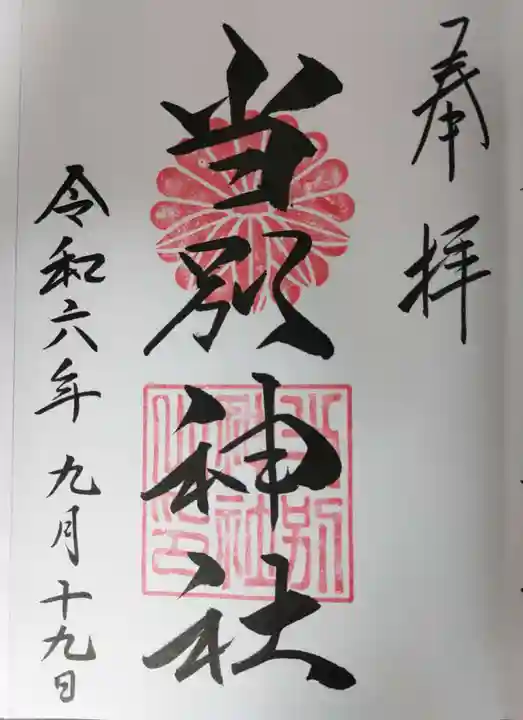 奉拝
当別神社
令和六年九月十九日
当別
神社
之印